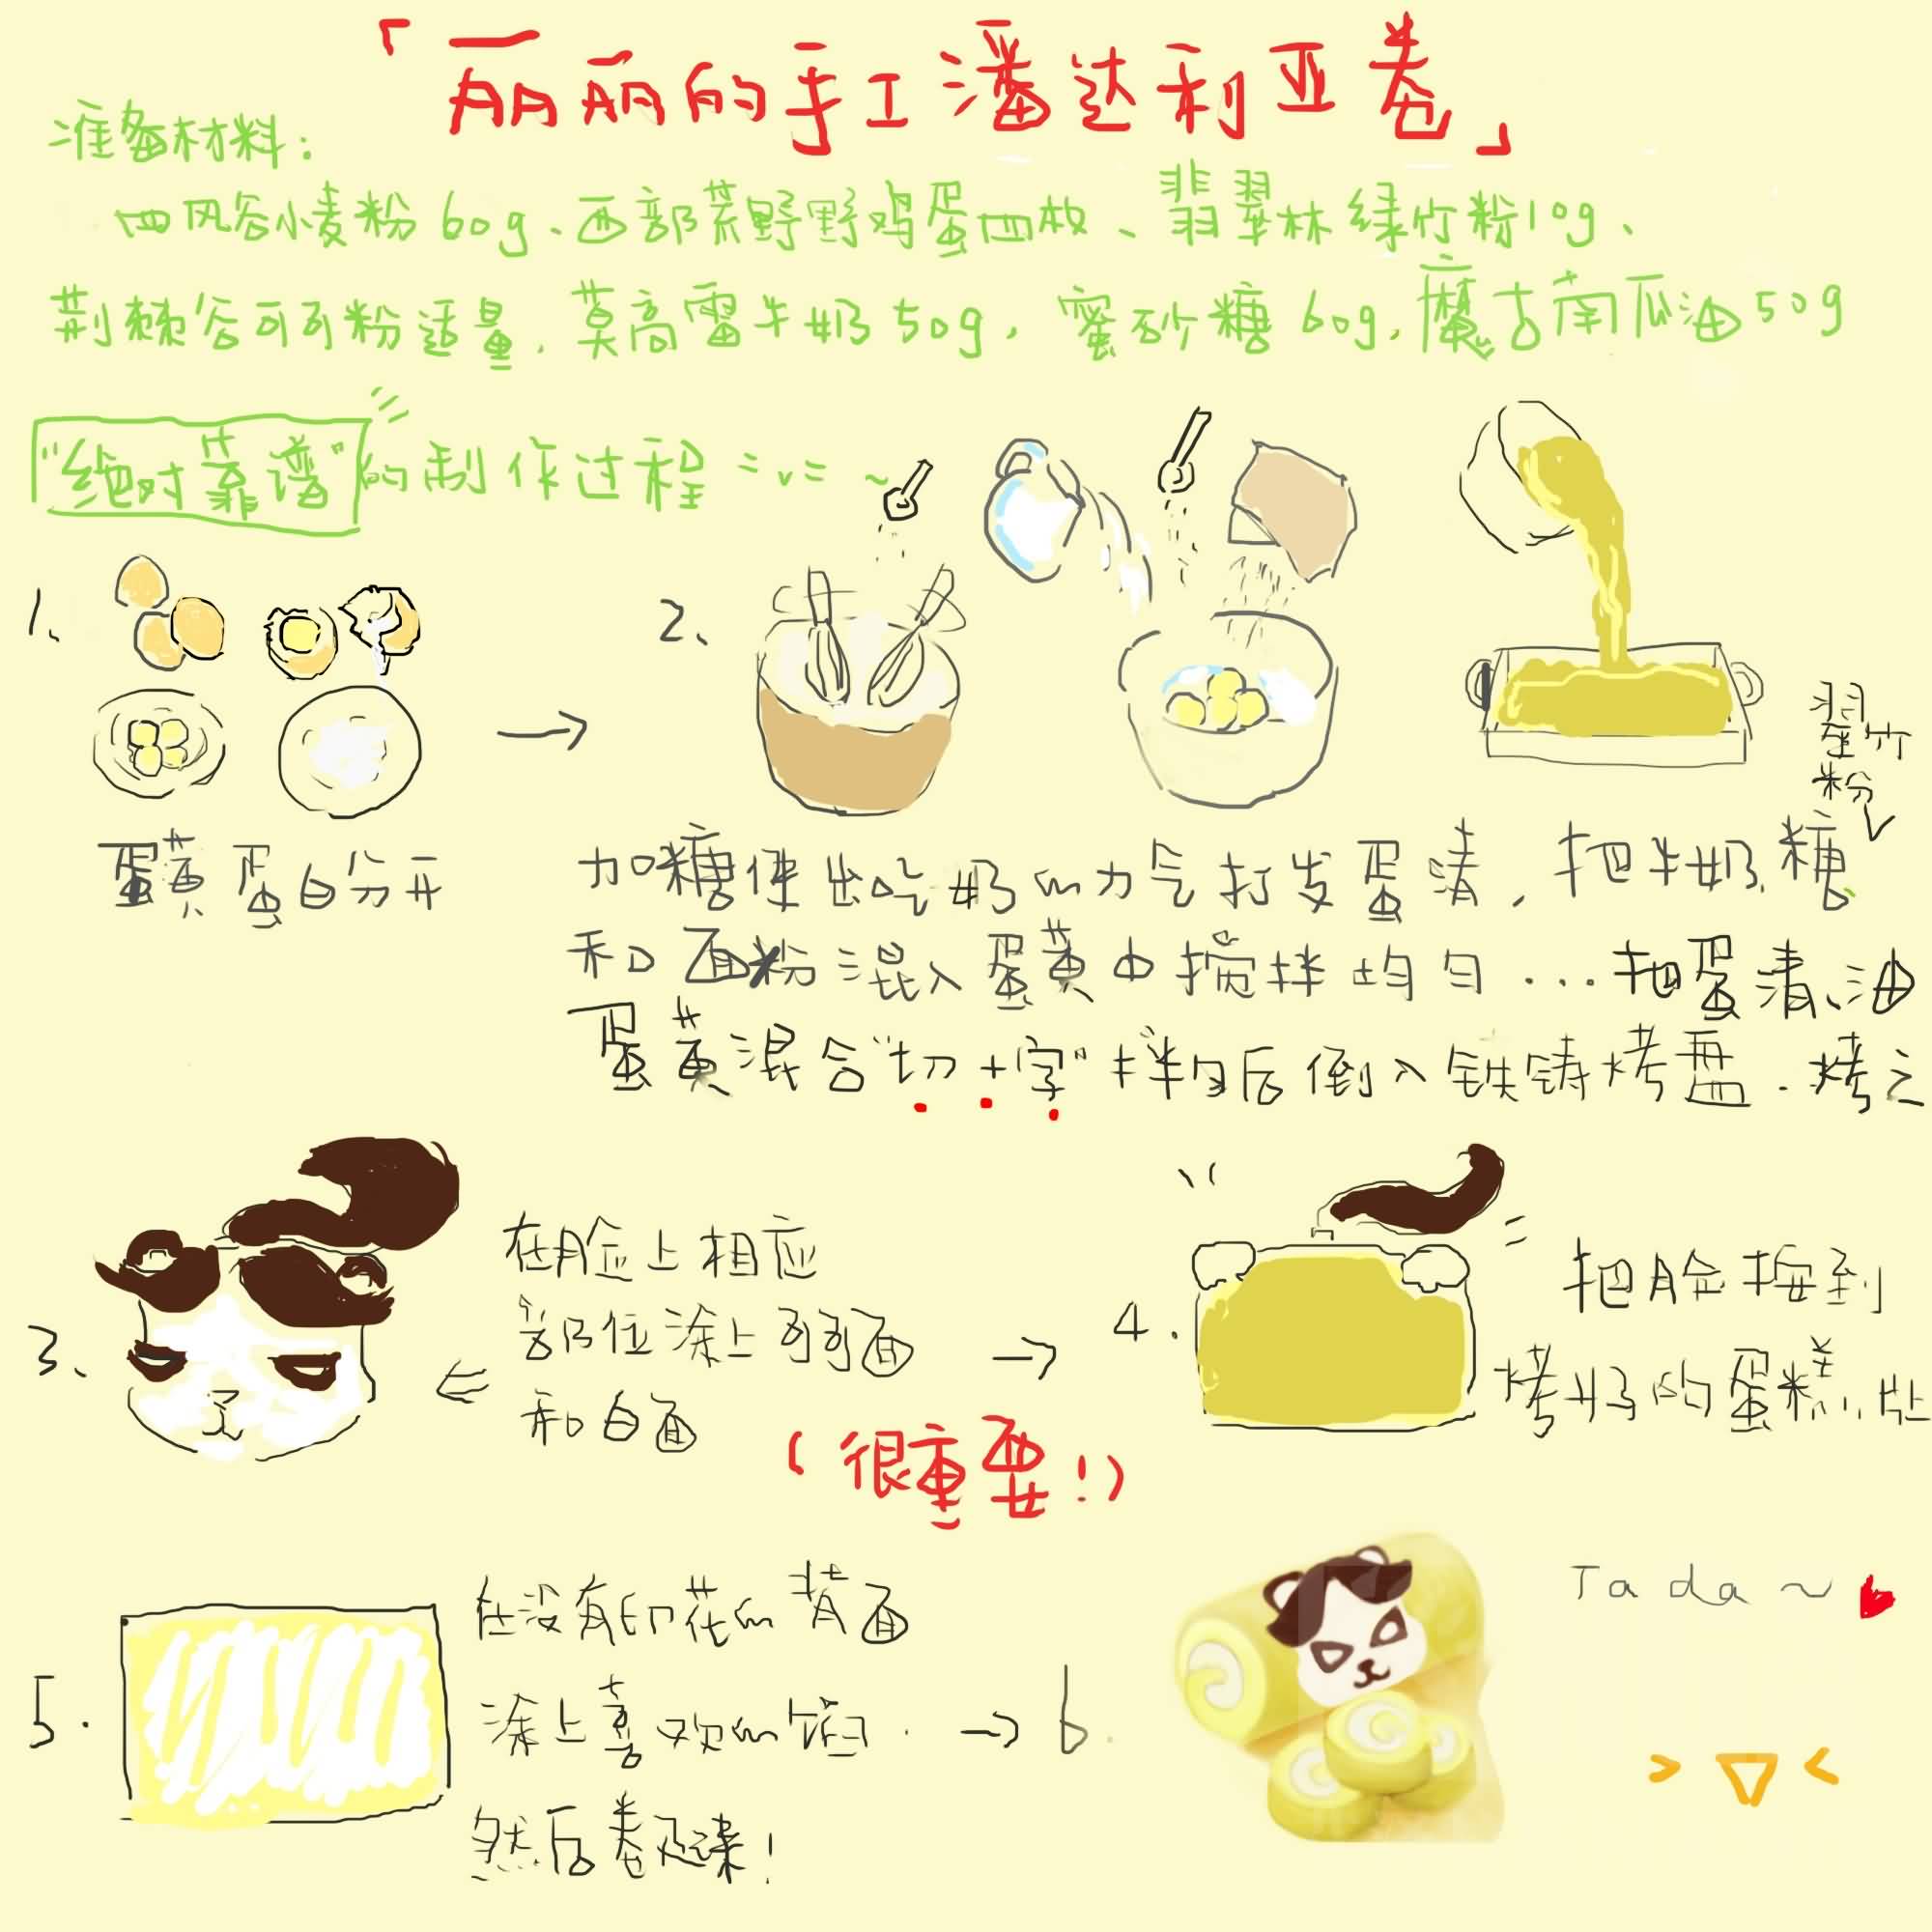 「丽丽的手工潘达利亚卷」
准备材料:
四风谷小麦粉60g、西部荒野野鸡蛋四枚、翡翠林绿竹粉10g、
荆棘谷可可粉适量,莫高雷牛奶50g,蜜砂糖60g,魔古南瓜油50g
"绝对靠谱"的制作过程 =v= ~
1、
蛋黄蛋白分开
→
2、
加糖使出吃奶的力气打发蛋清,把牛奶、糖、
翠竹粉
和面粉混入蛋黄中搅拌均匀...把蛋清、油
蛋黄混合"切十字"拌匀后倒入铁铸烤盘.烤之
3、
在脸上相应
部位涂上可可面
和白面
→
4.
把脸按到
烤好的蛋糕片上
(很重要!)
5.
在没有印花的背面
涂上喜欢的馅.
然后卷起来!
→
6.
Ta da~
>▽<